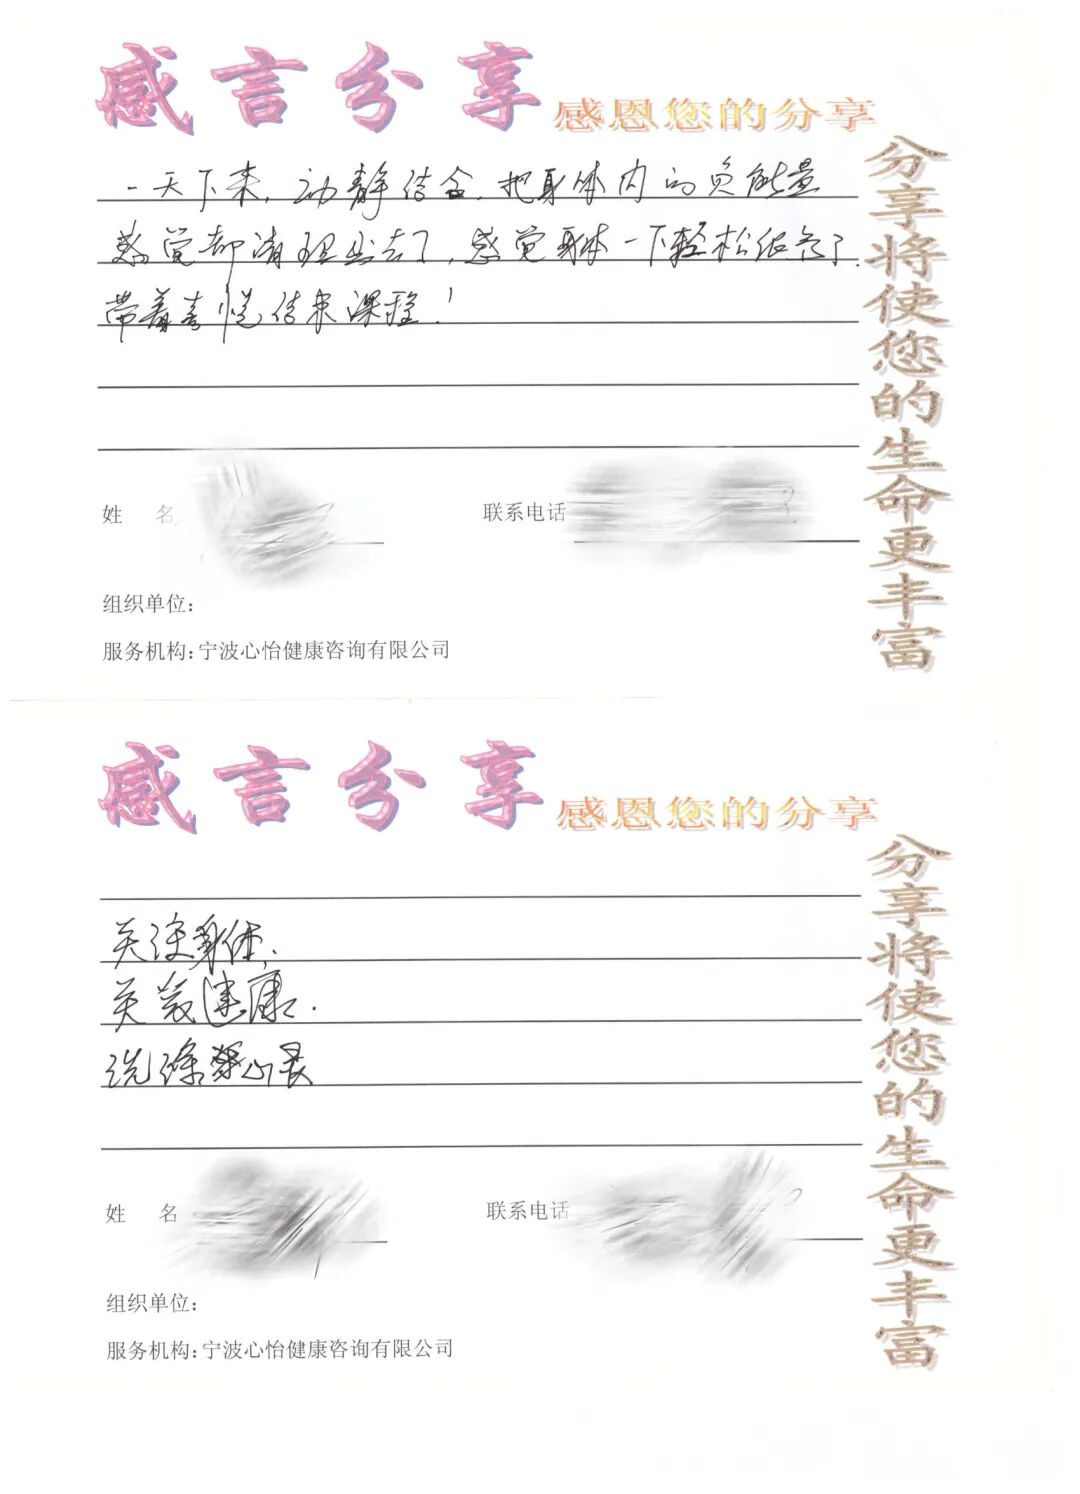 感言分享
感恩您的分享
一天下来，动静结合，把身体内的负能量
感觉都清理出去了，感觉身体一下轻松很多了
带着喜悦结束课程！
姓 名
联系电话
组织单位：
服务机构：宁波心怡健康咨询有限公司
分享将使您的生命更丰富
感言分享
感恩您的分享
关注身体，
关爱健康．
洗涤
姓 名
联系电话
组织单位：
服务机构：宁波心怡健康咨询有限公司
分享将使您的生命更丰富